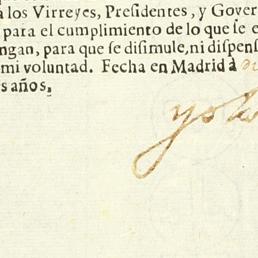 a los Virreyes, Presidentes, y Gover
para el cumplimiento de lo que se e
ngan, para que se disimule, ni dispens
mi voluntad. Fecha en Madrid à
s años,
yo